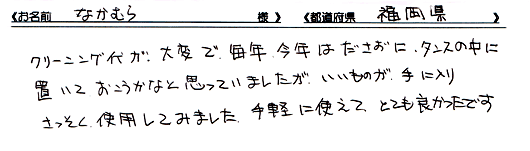 《お名前 なかむら 様》 《都道府県 福岡県 》
クリーニング代が、大変で、毎年、今年はださおに、タンスの中に
置いておこうかなと思っていましたが、いいものが、手に入り
さっそく、使用してみました。手軽に使えて、とても良かったです